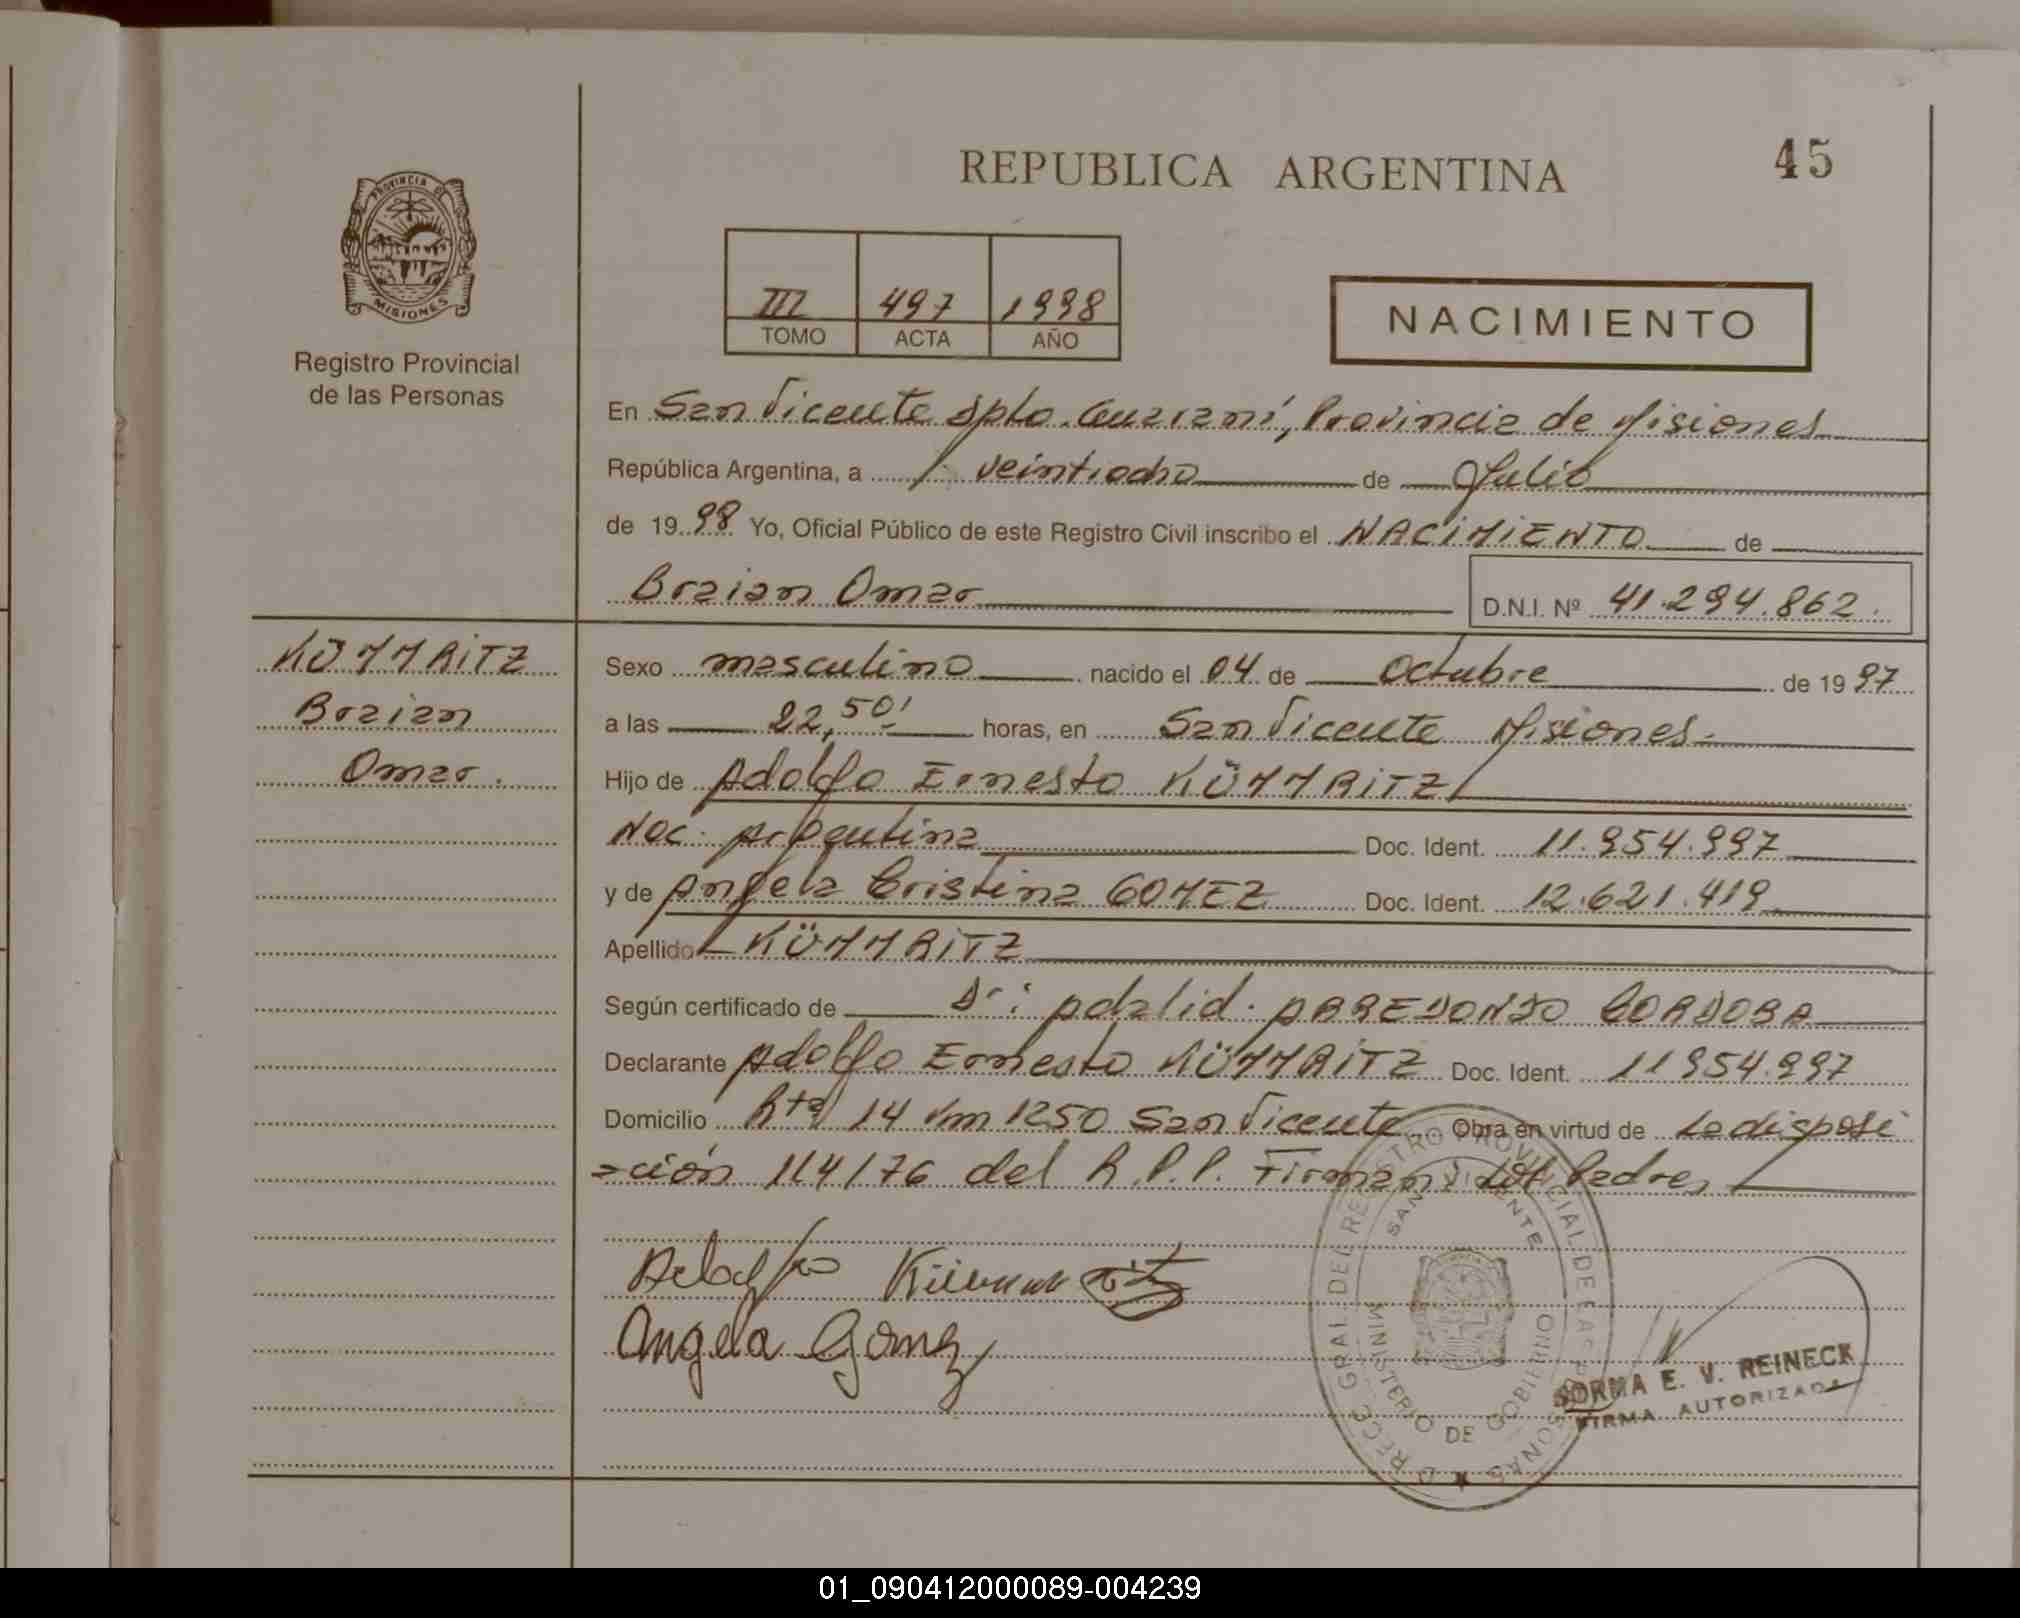 REPUBLICA ARGENTINA
45
PROVINCIA DE
MISIONES
Registro Provincial
de las Personas
III 497 1998
TOMO ACTA AÑO
NACIMIENTO
En San Vicente Dpto. Guaraní, Provincia de Misiones
República Argentina, a veintiocho de Julio
de 19 98 Yo, Oficial Público de este Registro Civil inscribo el NACIMIENTO de
Braian Omar
D.N.I. Nº 41.294.862.
KÜMMRITZ
Braian
Omar.
Sexo masculino nacido el 04 de Octubre de 19 97
a las 22,50' horas, en San Vicente Misiones.
Hijo de Adolfo Ernesto KÜMMRITZ
Nac. Argentina Doc. Ident. 11.954.997
y de Angela Cristina GOMEZ Doc. Ident. 12.621.419
Apellido KÜMMRITZ
Según certificado de Dr: Adalid. ARREDONDO CORDOBA
Declarante Adolfo Ernesto KÜMMRITZ Doc. Ident. 11954.997
Domicilio Rta 14 km 1250 San Vicente Obra en virtud de La disposi
=ción 114/76 del R.P.P. Firman los Padres
Adolfo Kümmritz
Angela Gomez
DIRECC GRAL DEL REGISTRO PROVINCIAL DE LAS PERSONAS
SAN VICENTE
MINISTERIO DE GOBIERNO
NORMA E. V. REINECK
FIRMA AUTORIZADA
01_090412000089-004239